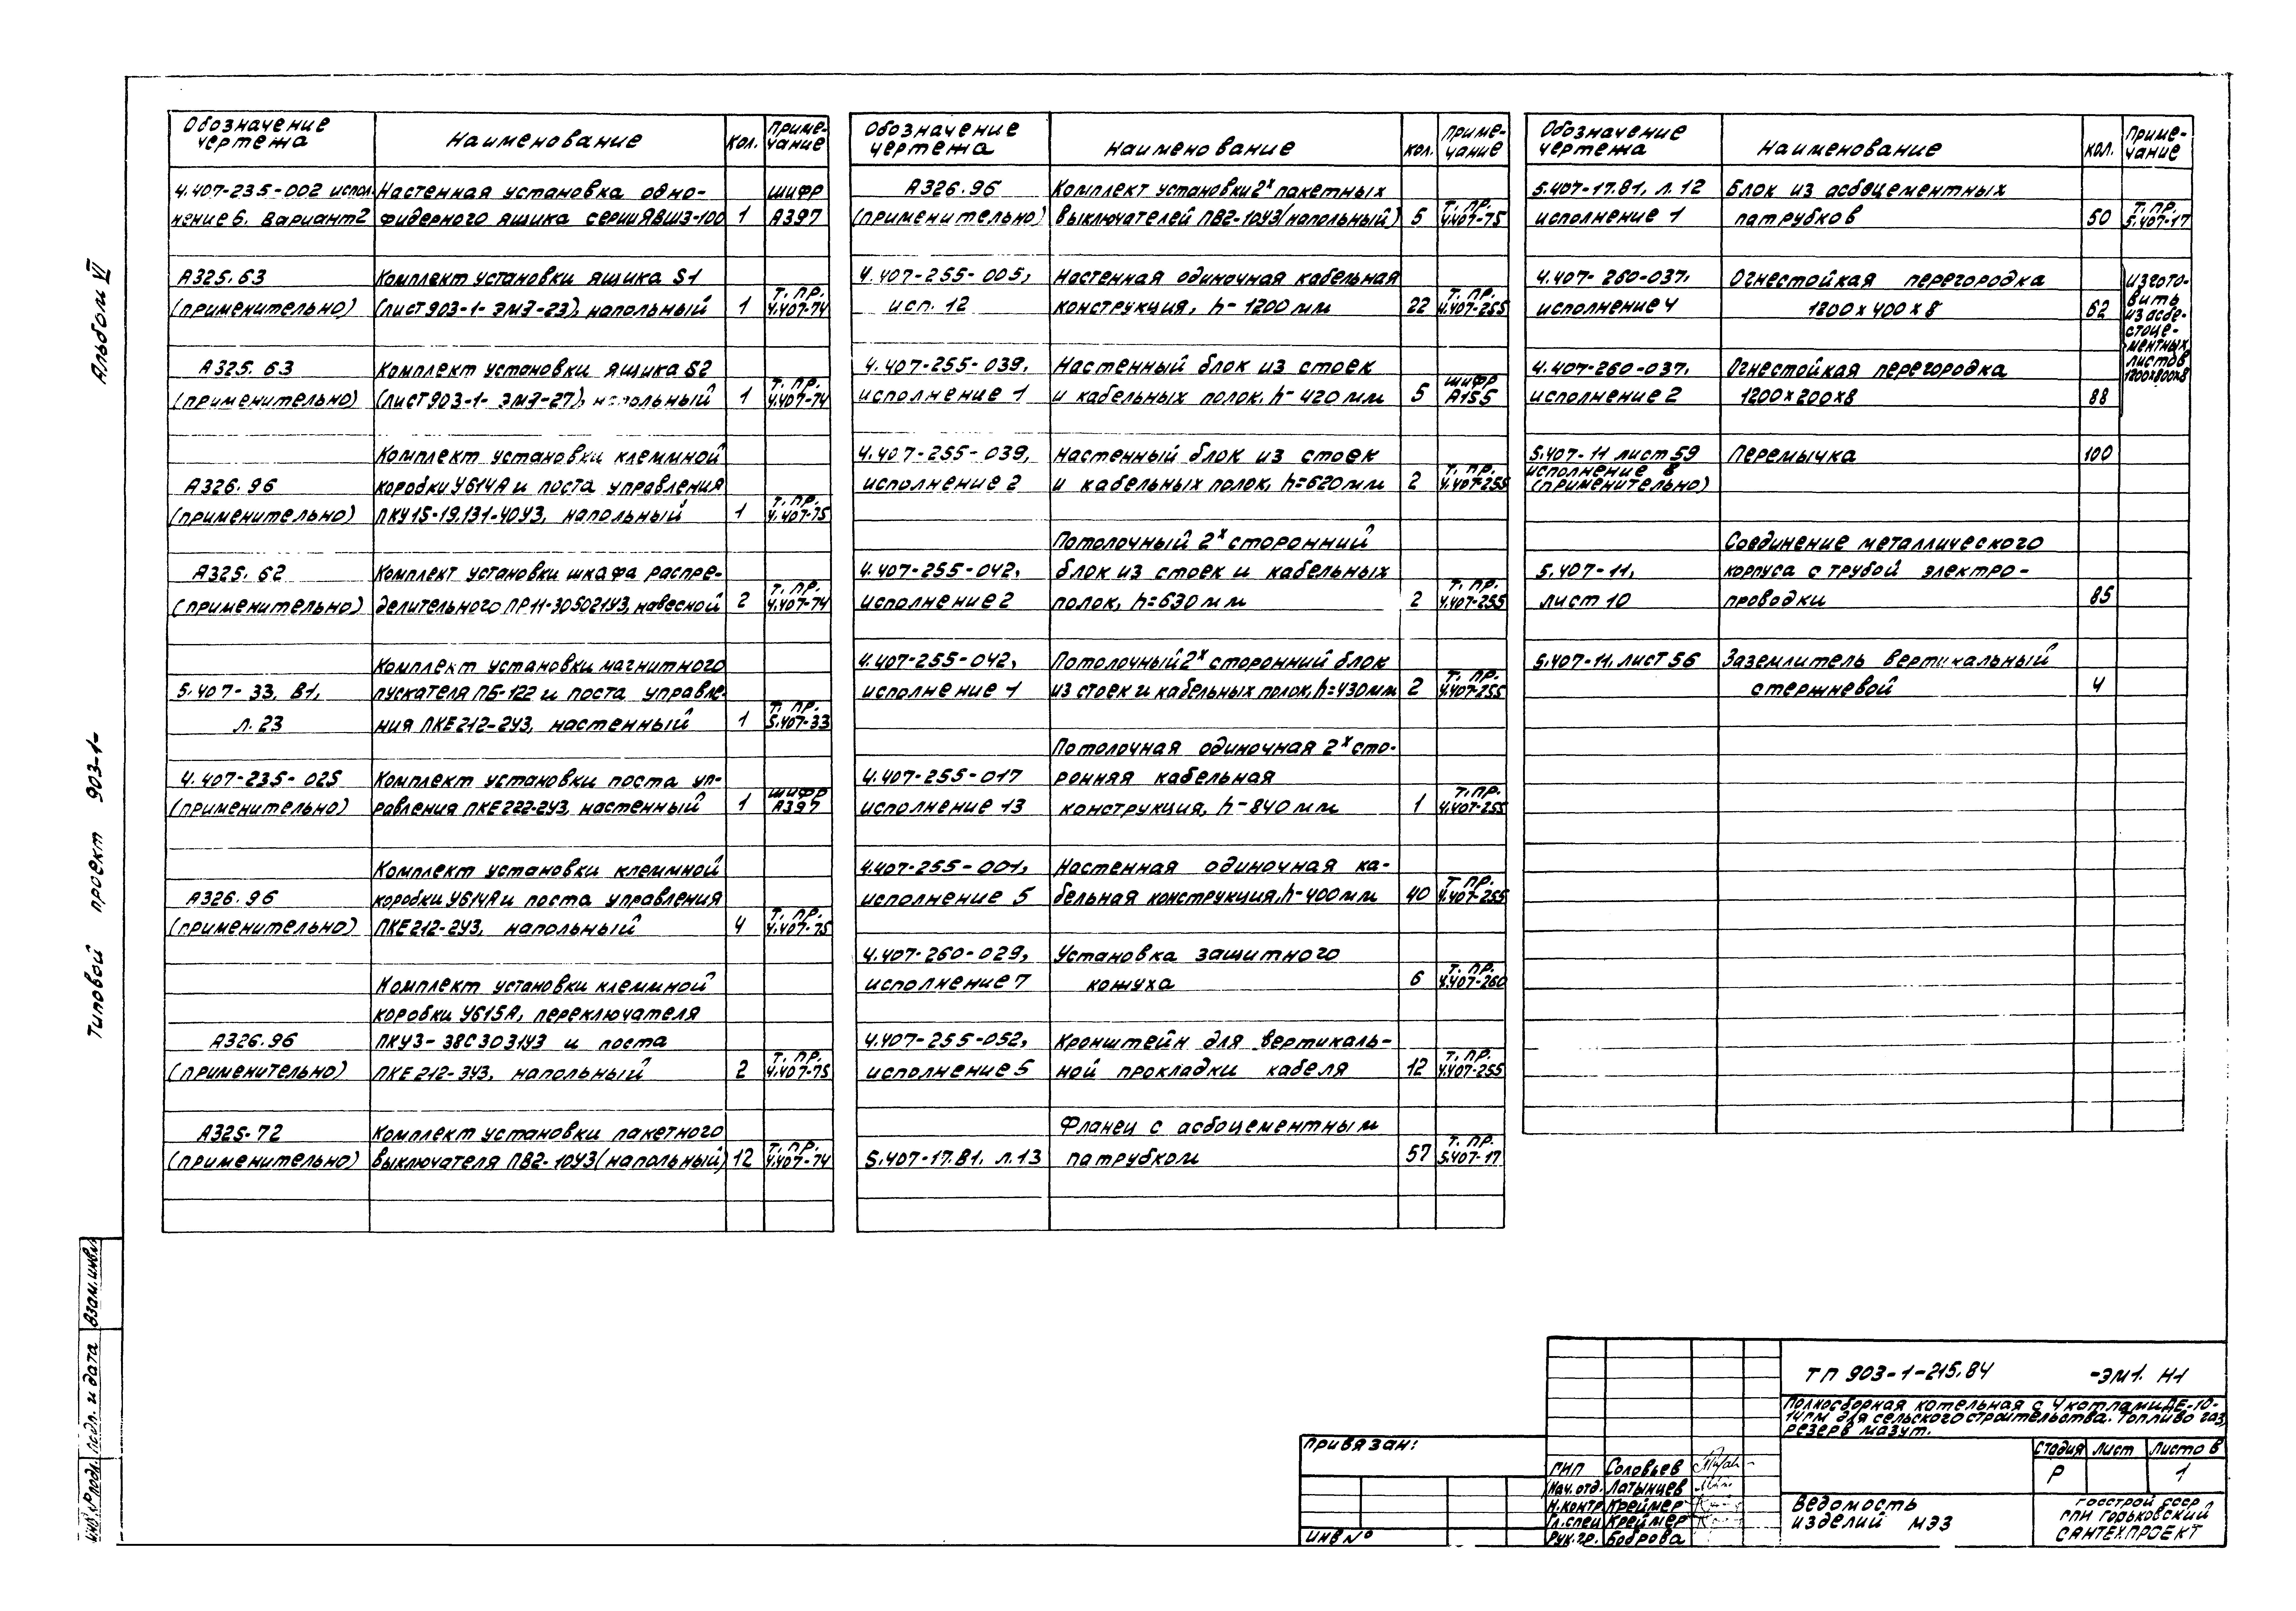 Альбом VI
Типовой проект 903-1-
Взам.инв.№
Подп. и дата
Инв.№ подл.
Обозначение чертежа Наименование Кол. Приме-чание
4.407-235-002 испол- Настенная установка одно- шифр
нение 6. Вариант 2 фидерного ящика серии ЯВШ3-100 1 А397
А325.63 Комплект установки ящика S1
(применительно) (лист 903-1- ЭМ7-23), напольный 1 Т. ПР. 4.407-74
А325.63 Комплект установки ящика S2
(применительно) (лист 903-1- ЭМ7-27), напольный 1 Т. ПР. 4.407-74
Комплект установки клеммной
А326.96 коробки У614А и поста управления
(применительно) ПКУ15-19.131-40У3, напольный 1 Т. ПР. 4.407-75
А325.62 Комплект установки шкафа распре-
(применительно) делительного ПР11-305021У3, навесной 2 Т. ПР. 4.407-74
Комплект установки магнитного
5.407-33, В1, пускателя ПБ-122 и поста управле-
л. 23 ния ПКЕ 212-2У3, настенный 1 Т. ПР. 5.407-33
4.407-235-025 Комплект установки поста уп-
(применительно) равления ПКЕ 222-2У3, настенный 1 шифр А397
Комплект установки клеммной
А326.96 коробки У614А и поста управления
(применительно) ПКЕ 212-2У3, напольный 4 Т. ПР. 4.407-75
Комплект установки клеммной
коробки У615А, переключателя
А326.96 ПКУ3-38С3031У3 и поста
(применительно) ПКЕ 212-3У3, напольный 2 Т. ПР. 4.407-75
А325-72 Комплект установки пакетного
(применительно) выключателя ПВ2-10У3 (напольный) 12 Т. ПР. 4.407-74
Обозначение чертежа Наименование Кол. Приме-чание
А326.96 Комплект установки 2х пакетных
(применительно) выключателей ПВ2-10У3 (напольный) 5 Т. ПР. 4.407-75
4.407-255-005, Настенная одиночная кабельная
исп. 12 конструкция, h-1200 мм 22 Т. ПР. 4.407-255
4.407-255-039, Настенный блок из стоек
исполнение 1 и кабельных полок, h-420 мм 5 шифр А155
4.407-255-039, Настенный блок из стоек
исполнение 2 и кабельных полок, h=620 мм 2 Т. ПР. 4.407-255
Потолочный 2х сторонний
4.407-255-042, блок из стоек и кабельных
исполнение 2 полок, h=630 мм 2 Т. ПР. 4.407-255
4.407-255-042, Потолочный 2х сторонний блок
исполнение 1 из стоек и кабельных полок, h=430 мм 2 Т. ПР. 4.407-255
Потолочная одиночная 2х сто-
4.407-255-017 ронняя кабельная
исполнение 13 конструкция, h-840 мм 1 Т. ПР. 4.407-255
4.407-255-001, Настенная одиночная ка-
исполнение 5 бельная конструкция, h-400 мм 40 Т ПР. 4.407-255
4.407-260-029, Установка защитного
исполнение 7 кожуха 6 Т. ПР. 4.407-260
4.407-255-052, Кронштейн для вертикаль-
исполнение 5 ной прокладки кабеля 12 Т. ПР. 4.407-255
Фланец с асбоцементным
5.407-17.В1. л.13 патрубком 57 Т. ПР. 5.407-17
Обозначение чертежа Наименование Кол. Приме-чание
5.407-17.В1, л. 12 Блок из асбоцементных
исполнение 1 патрубков 50 Т. ПР. 5.407-17
4.407-260-037, Огнестойкая перегородка
исполнение 4 1200 х 400 х 8 62
4.407-260-037, Огнестойкая перегородка
исполнение 2 1200х200х8 88
Изгото-
вить
из асбе-
стоце-
ментных
листов
1200х800х8
5.407-11 лист 59 Перемычка 100
исполнение 8
(применительно)
Соединение металлического
5.407-11, корпуса с трубой электро-
лист 10 проводки 85
5.407-11, лист 56 Заземлитель вертикальный
стержневой 4
ТП 903-1-215.84 -ЭМ1. Н1
Полносборная котельная с 4 котлами ДЕ-10-
14ГМ для сельского строительства. Топливо газ,
резерв мазут.
Стадия Лист Листов
Р 1
Ведомость
изделий МЭЗ
Госстрой СССР
ГПИ Горьковский
Сантехпроект
Привязан:
Инв №
ГИП Соловьев
Нач. отд. Латынцев
Н.контр Креймер
Гл.спец Креймер
Рук. гр. Боброва